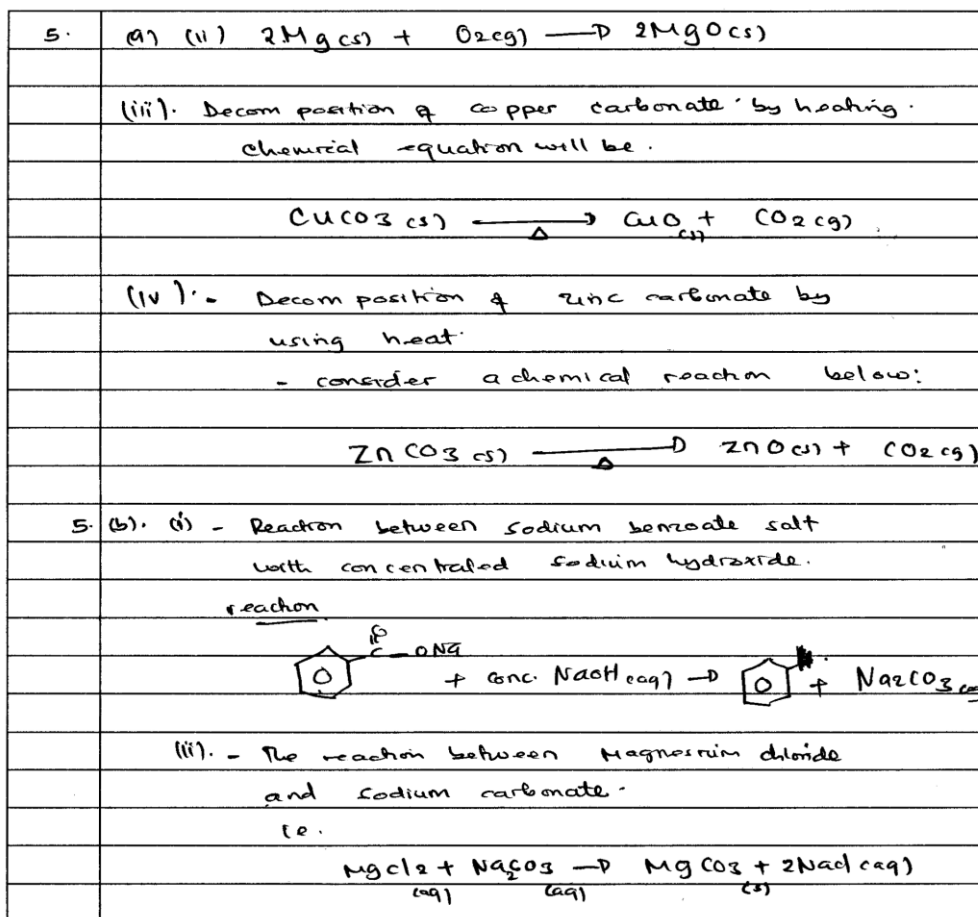 5. (a) (ii) 2Mg(s) + O2(g) → 2MgO(s)
(iii). Decomposition of copper carbonate by heating.
chemical equation will be.
CuCO3(s) → CuO(s) + CO2(g)
Δ
(iv).- Decomposition of zinc carbonate by
using heat.
- consider a chemical reaction below:
ZnCO3(s) → ZnO(s) + CO2(g)
Δ
5. (b). (i) - Reaction between sodium benzoate salt
with concentrated sodium hydroxide.
reaction
O
C - ONa
+ conc. NaOH(aq) → + Na2CO3
(ii). - The reaction between Magnesium chloride
and sodium carbonate.
ie.
MgCl2(aq) + Na2CO3(aq) → MgCO3(s) + 2NaCl(aq)